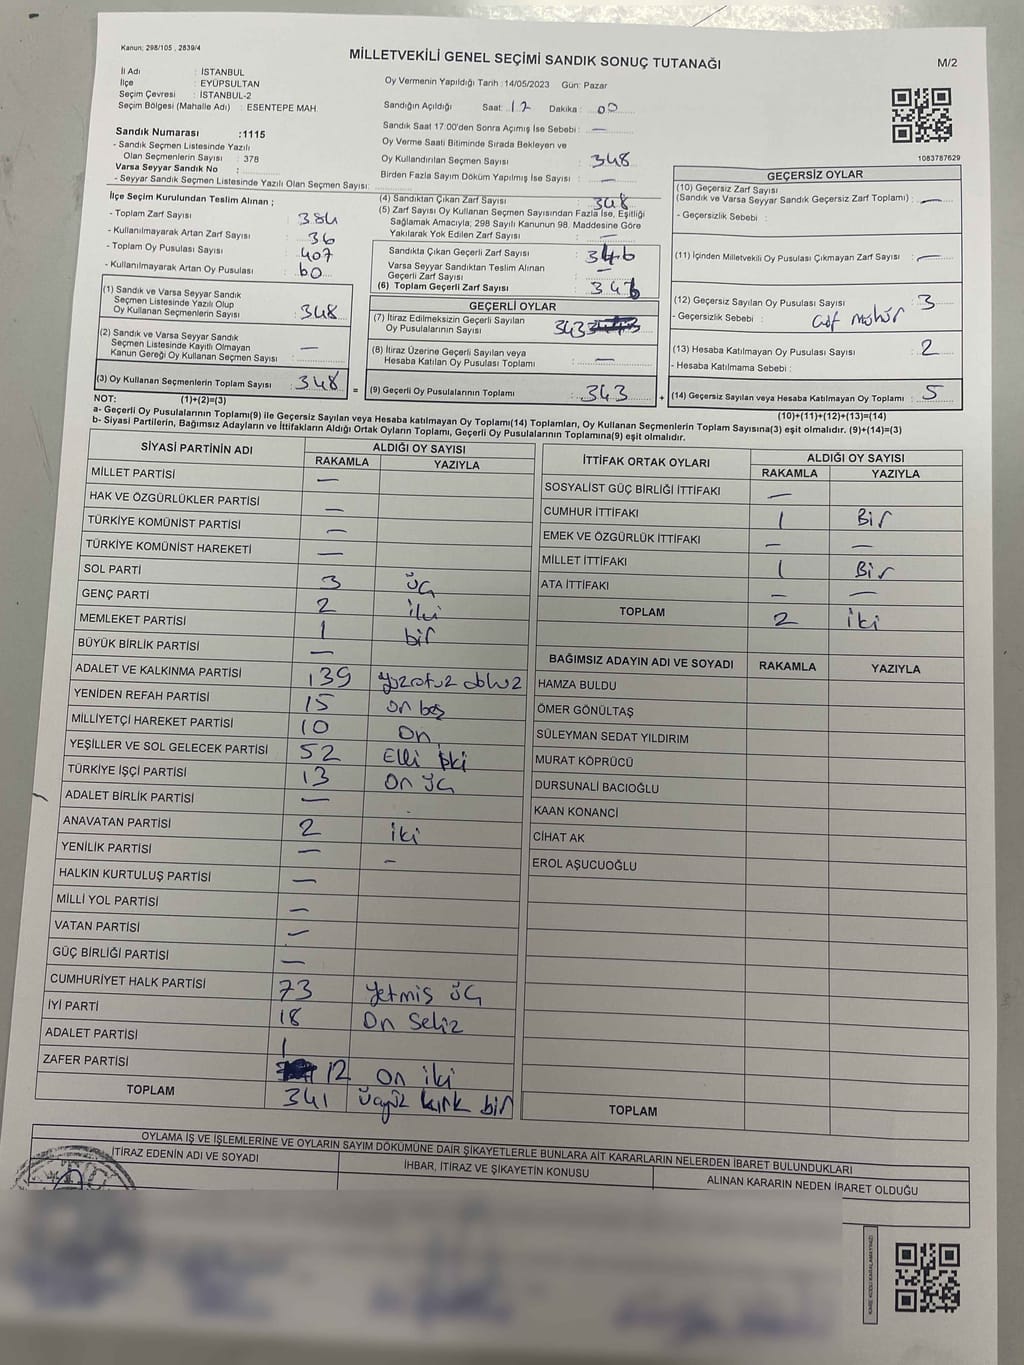 Kanun; 298/105 , 2839/4
MİLLETVEKİLİ GENEL SEÇİMİ SANDIK SONUÇ TUTANAĞI
M/2
İl Adı : İSTANBUL
İlçe : EYÜPSULTAN
Seçim Çevresi : İSTANBUL-2
Seçim Bölgesi (Mahalle Adı) : ESENTEPE MAH
Oy Vermenin Yapıldığı Tarih :14/05/2023 Gün: Pazar
Sandığın Açıldığı Saat: 12 Dakika : 00
Sandık Saat 17:00'den Sonra Açılmış İse Sebebi : —
Oy Verme Saati Bitiminde Sırada Bekleyen ve
Oy Kullandırılan Seçmen Sayısı : 348
Birden Fazla Sayım Döküm Yapılmış İse Sayısı : —
1083787629
Sandık Numarası :1115
- Sandık Seçmen Listesinde Yazılı
Olan Seçmenlerin Sayısı : 378
Varsa Seyyar Sandık No :
- Seyyar Sandık Seçmen Listesinde Yazılı Olan Seçmen Sayısı:
İlçe Seçim Kurulundan Teslim Alınan ;
- Toplam Zarf Sayısı : 384
- Kullanılmayarak Artan Zarf Sayısı : 36
- Toplam Oy Pusulası Sayısı : 407
- Kullanılmayarak Artan Oy Pusulası : 60
(1) Sandık ve Varsa Seyyar Sandık
Seçmen Listesinde Yazılı Olup
Oy Kullanan Seçmenlerin Sayısı : 348
(2) Sandık ve Varsa Seyyar Sandık
Seçmen Listesinde Kayıtlı Olmayan
Kanun Gereği Oy Kullanan Seçmen Sayısı : —
(3) Oy Kullanan Seçmenlerin Toplam Sayısı : 348 =
(4) Sandıktan Çıkan Zarf Sayısı : 348
(5) Zarf Sayısı Oy Kullanan Seçmen Sayısından Fazla İse, Eşitliği
Sağlamak Amacıyla; 298 Sayılı Kanunun 98. Maddesine Göre
Yakılarak Yok Edilen Zarf Sayısı : —
Sandıkta Çıkan Geçerli Zarf Sayısı : 346
Varsa Seyyar Sandıktan Teslim Alınan
Geçerli Zarf Sayısı : —
(6) Toplam Geçerli Zarf Sayısı : 346
GEÇERLİ OYLAR
(7) İtiraz Edilmeksizin Geçerli Sayılan
Oy Pusulalarının Sayısı : 343
(8) İtiraz Üzerine Geçerli Sayılan veya
Hesaba Katılan Oy Pusulası Toplamı : —
(9) Geçerli Oy Pusulalarının Toplamı : 343 +
GEÇERSİZ OYLAR
(10) Geçersiz Zarf Sayısı
(Sandık ve Varsa Seyyar Sandık Geçersiz Zarf Toplamı) : —
- Geçersizlik Sebebi :
(11) İçinden Milletvekili Oy Pusulası Çıkmayan Zarf Sayısı : —
(12) Geçersiz Sayılan Oy Pusulası Sayısı : 3
- Geçersizlik Sebebi : çift mühür
(13) Hesaba Katılmayan Oy Pusulası Sayısı : 2
- Hesaba Katılmama Sebebi :
(14) Geçersiz Sayılan veya Hesaba Katılmayan Oy Toplamı : 5
NOT: (1)+(2)=(3)
(10)+(11)+(12)+(13)=(14)
a- Geçerli Oy Pusulalarının Toplamı(9) ile Geçersiz Sayılan veya Hesaba katılmayan Oy Toplamı(14) Toplamları, Oy Kullanan Seçmenlerin Toplam Sayısına(3) eşit olmalıdır. (9)+(14)=(3)
b- Siyasi Partilerin, Bağımsız Adayların ve İttifakların Aldığı Ortak Oyların Toplamı, Geçerli Oy Pusulalarının Toplamına(9) eşit olmalıdır.
SİYASİ PARTİNİN ADI ALDIĞI OY SAYISI
RAKAMLA YAZIYLA
MİLLET PARTİSİ —
HAK VE ÖZGÜRLÜKLER PARTİSİ —
TÜRKİYE KOMÜNİST PARTİSİ —
TÜRKİYE KOMÜNİST HAREKETİ —
SOL PARTİ 3 üç
GENÇ PARTİ 2 iki
MEMLEKET PARTİSİ 1 bir
BÜYÜK BİRLİK PARTİSİ —
ADALET VE KALKINMA PARTİSİ 139 yüzotuz dokuz
YENİDEN REFAH PARTİSİ 15 on beş
MİLLİYETÇİ HAREKET PARTİSİ 10 On
YEŞİLLER VE SOL GELECEK PARTİSİ 52 Elli iki
TÜRKİYE İŞÇİ PARTİSİ 13 On üç
ADALET BİRLİK PARTİSİ —
ANAVATAN PARTİSİ 2 iki
YENİLİK PARTİSİ — –
HALKIN KURTULUŞ PARTİSİ —
MİLLİ YOL PARTİSİ —
VATAN PARTİSİ —
GÜÇ BİRLİĞİ PARTİSİ —
CUMHURİYET HALK PARTİSİ 73 Yetmiş üç
İYİ PARTİ 18 On Sekiz
ADALET PARTİSİ 1
ZAFER PARTİSİ 12 on iki
TOPLAM 341 üçyüz kırk bir
İTTİFAK ORTAK OYLARI ALDIĞI OY SAYISI
RAKAMLA YAZIYLA
SOSYALİST GÜÇ BİRLİĞİ İTTİFAKI —
CUMHUR İTTİFAKI 1 Bir
EMEK VE ÖZGÜRLÜK İTTİFAKI — —
MİLLET İTTİFAKI 1 Bir
ATA İTTİFAKI — —
TOPLAM 2 iki
BAĞIMSIZ ADAYIN ADI VE SOYADI RAKAMLA YAZIYLA
HAMZA BULDU
ÖMER GÖNÜLTAŞ
SÜLEYMAN SEDAT YILDIRIM
MURAT KÖPRÜCÜ
DURSUNALİ BACIOĞLU
KAAN KONANCİ
CİHAT AK
EROL AŞUCUOĞLU
TOPLAM
OYLAMA İŞ VE İŞLEMLERİNE VE OYLARIN SAYIM DÖKÜMÜNE DAİR ŞİKAYETLERLE BUNLARA AİT KARARLARIN NELERDEN İBARET BULUNDUKLARI
İTİRAZ EDENİN ADI VE SOYADI
İHBAR, İTİRAZ VE ŞİKAYETİN KONUSU
ALINAN KARARIN NEDEN İBARET OLDUĞU